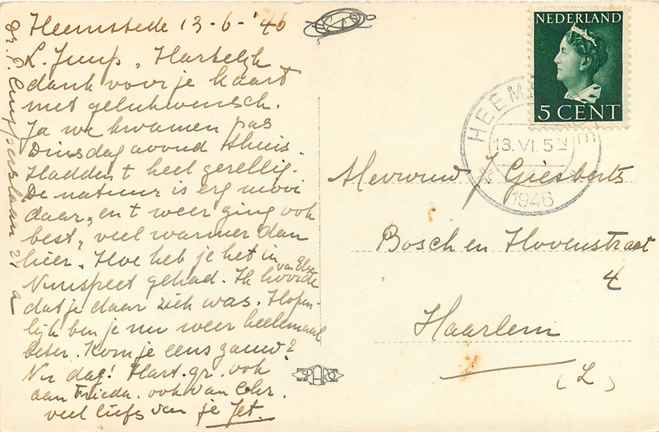 Heemstede 13-6-'46
L. Juup, Hartelijk
dank voor je kaart
met gelukwensch.
Ja we kwamen pas
Dinsdag avond thuis.
Hadden 't heel gezellig.
De natuur is erg mooi
daar, en 't weer ging ook
best, veel warmer dan
hier. Hoe heb je het in
Nunspeet gehad. Ik hoorde
van Else
dat je daar ziek was. Hopen-
lijk ben je nu weer heelemaal
beter. Kom je eens gauw?
Nu dag! Hart. gr. ook
aan Frieda. ook van
veel liefs van je Jet.
NEDERLAND
5 CENT
HEEMSTEDE
13.VI.5
1946
Mevrouw J Giesberts
Bosch en Hovenstraat
4
Haarlem
(L)